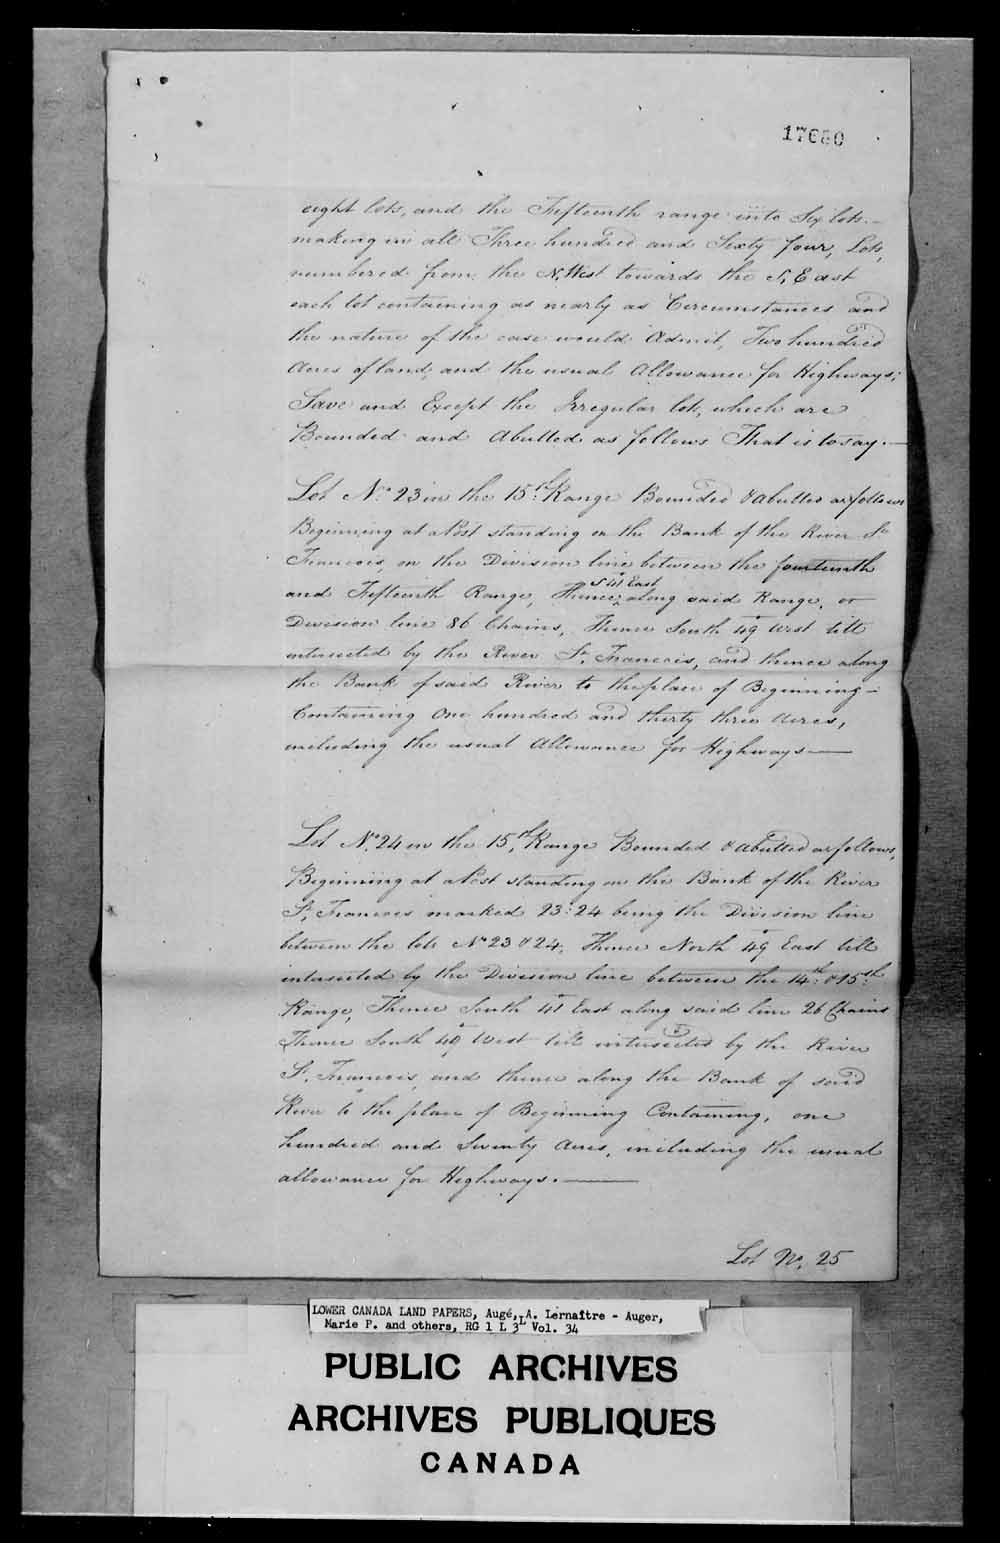 17680
eight lots, and the Fifteenth range into Six lots.—
making in all Three hundred and Sixty four, Lots,
numbered from the N, West towards the S, East
each lot containing as nearly as Circumstances and
the nature of the case would Admit, Two hundred
Acres of land, and the usual Allowance for Highways;
Save and Except the Irregular lots, which are
Bounded and Abutted as follows That is to say.—
Lot No. 23 in the 15th. Range Bounded & abutted as follows
Beginning at a Post standing on the Bank of the River St
Francois, on the Division line between the fourteenth
S 41° East
and Fifteenth Range, Thence along said Range, or
Division line 86 Chains, Thence South 49° West till
intersected by the River St. Francois, and thence along
the Bank of said River to the place of Beginning –
Containing One hundred and thirty three Acres,
including the usual Allowance for Highways—
Lot No. 24 in the 15th. Range Bounded & abutted as follows,
Beginning at a Post standing on the Bank of the River
St. Francois marked 23:24 being the Division line
between the lots No. 23 & 24, Thence North 49° East till
intersected by the Division line between the 14th. & 15th.
Range, Thence South 41° East along said line 26 Chains
Thence South 49° West till intersected by the River
St. Francois, and thence along the Bank of said
River to the place of Beginning Containing, one
hundred and Seventy Acres, including the usual
allowance for Highways.—
Lot No. 25
LOWER CANADA LAND PAPERS, Augé, A. Lernaître - Auger,
Marie P. and others, RG 1 L 3L Vol. 34
PUBLIC ARCHIVES
ARCHIVES PUBLIQUES
CANADA